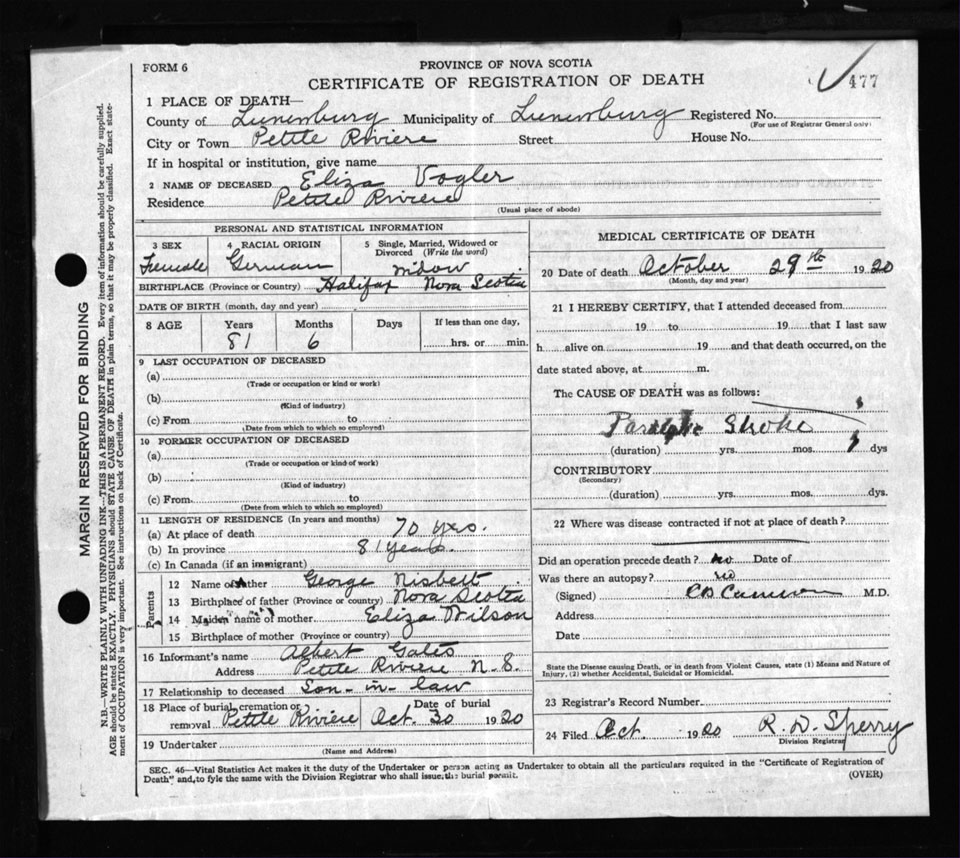 FORM 6
PROVINCE OF NOVA SCOTIA
CERTIFICATE OF REGISTRATION OF DEATH
477
1 PLACE OF DEATH—
County of Lunenburg Municipality of Lunenburg Registered No.
(For use of Registrar General only)
City or Town Petite Riviere Street House No.
If in hospital or institution, give name
2 NAME OF DECEASED Eliza Vogler
Residence Petite Riviere
(Usual place of abode)
PERSONAL AND STATISTICAL INFORMATION
3 SEX 4 RACIAL ORIGIN 5 Single, Married, Widowed or Divorced (Write the word)
Female German widow
BIRTHPLACE (Province or Country) Halifax Nova Scotia
DATE OF BIRTH (month, day and year)
8 AGE Years Months Days If less than one day,
81 6 hrs. or min.
9 LAST OCCUPATION OF DECEASED
(a)
(Trade or occupation or kind or work)
(b)
(Kind of industry)
(c) From to
(Date from which to which so employed)
10 FORMER OCCUPATION OF DECEASED
(a)
(Trade or occupation or kind of work)
(b)
(Kind of industry)
(c) From to
(Date from which to which so employed)
11 LENGTH OF RESIDENCE (In years and months)
(a) At place of death 70 yrs.
(b) In province 81 years
(c) In Canada (if an immigrant)
Parents
12 Name of father George Nisbett
13 Birthplace of father (Province or country) Nova Scotia
14 Maiden name of mother Eliza Wilson
15 Birthplace of mother (Province or country)
16 Informant's name Albert Gates
Address Petite Riviere N.S.
17 Relationship to deceased Son-in-law
18 Place of burial, cremation or removal Petite Riviere Date of burial Oct. 30 1920
19 Undertaker
(Name and Address)
MEDICAL CERTIFICATE OF DEATH
20 Date of death October 29th 1920
(Month, day and year)
21 I HEREBY CERTIFY, that I attended deceased from
19 to 19 that I last saw
h alive on 19 and that death occurred, on the
date stated above, at m.
The CAUSE OF DEATH was as follows:
Stroke
(duration) yrs. mos. dys
CONTRIBUTORY
(Secondary)
(duration) yrs. mos. dys.
22 Where was disease contracted if not at place of death?
Did an operation precede death? no Date of
Was there an autopsy? no
(Signed) M.D.
Address
Date
State the Disease causing Death, or in death from Violent Causes, state (1) Means and Nature of
Injury, (2) whether Accidental, Suicidal or Homicidal.
23 Registrar's Record Number
24 Filed Oct. 1920 R. D. Sperry
Division Registrar
SEC. 46—Vital Statistics Act makes it the duty of the Undertaker or person acting as Undertaker to obtain all the particulars required in the "Certificate of Registration of
Death" and to fyle the same with the Division Registrar who shall issue the burial permit. (OVER)
MARGIN RESERVED FOR BINDING
N.B.—WRITE PLAINLY WITH UNFADING INK—THIS IS A PERMANENT RECORD. Every item of information should be carefully supplied.
AGE should be stated EXACTLY. PHYSICIANS should STATE CAUSE OF DEATH in plain terms, so that it may be properly classified. Exact state-
ment of OCCUPATION is very important. See instructions on back of Certificate.